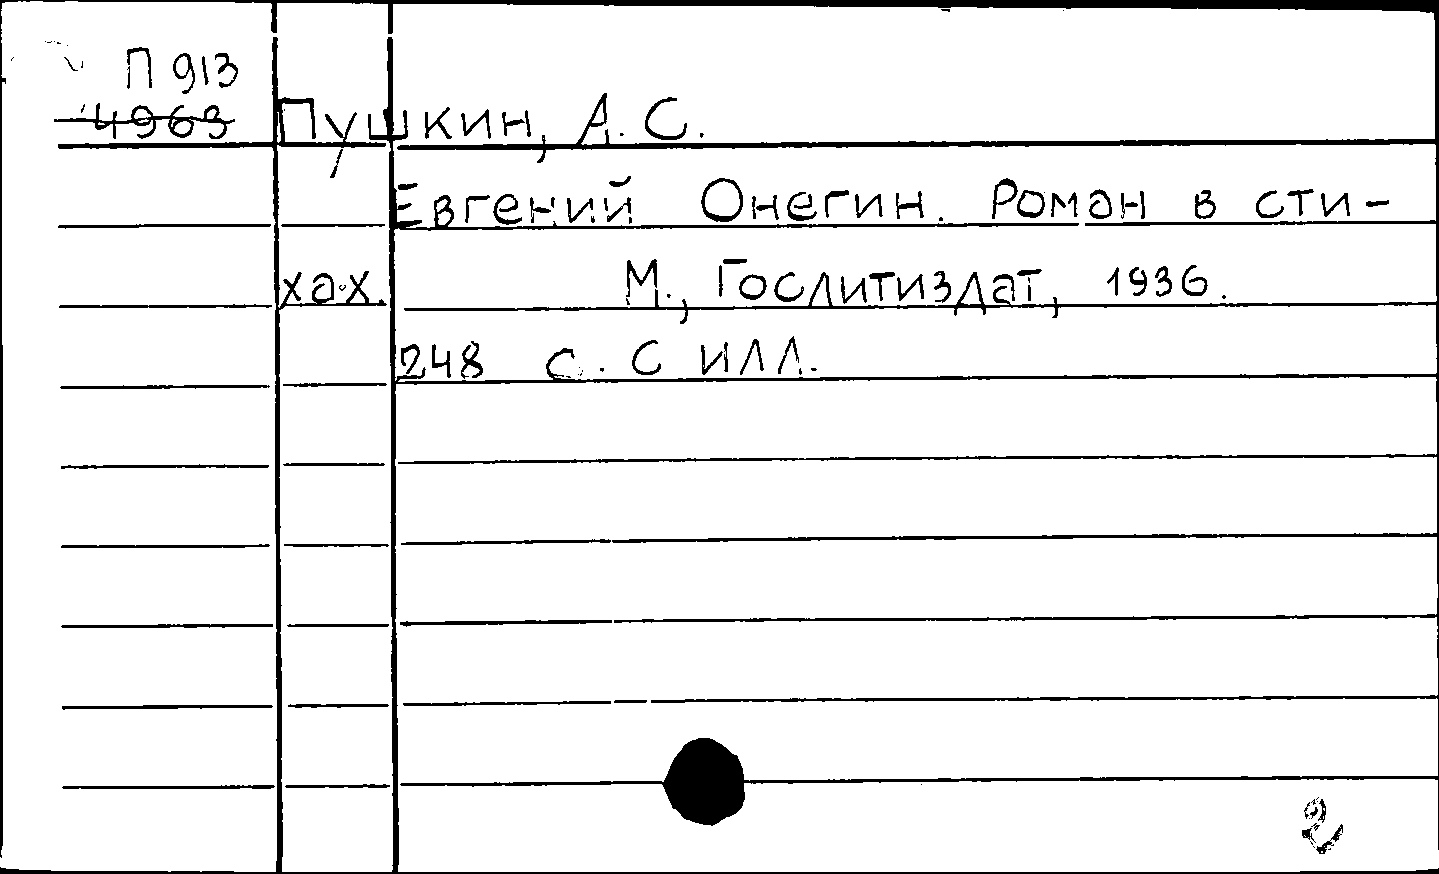 П 913
4963
Пушкин, А. С.
Евгений Онегин. Роман в сти-
хах. М., Гослитиздат, 1936.
248 с. с илл.
2